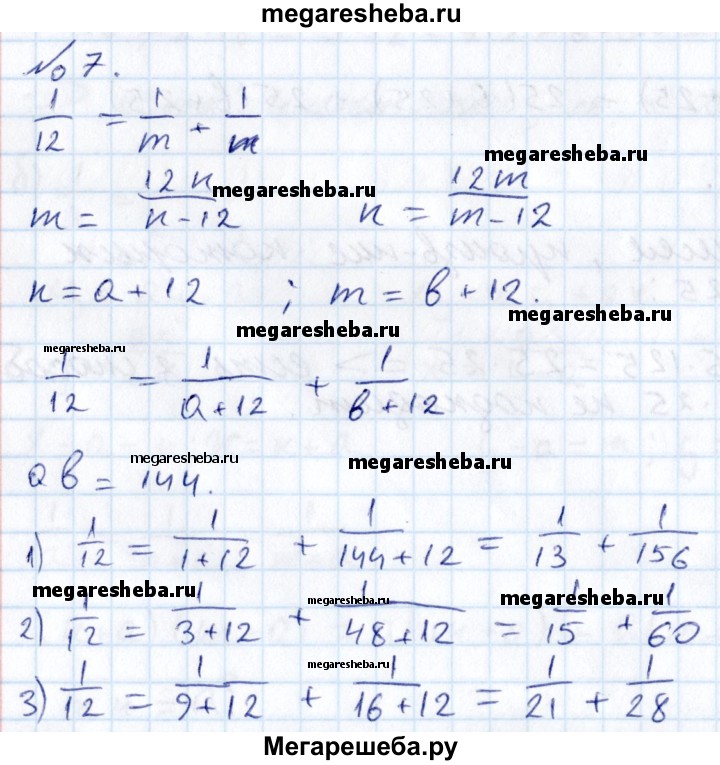 megaresheba.ru
№ 7.
1/12 = 1/m + 1/n
megaresheba.ru
m = 12n/n-12 megaresheba.ru n = 12m/m-12
n = a + 12 ; m = b + 12.
megaresheba.ru megaresheba.ru megaresheba.ru
1/12 = 1/a+12 + 1/b+12
ab = 144. megaresheba.ru megaresheba.ru
1) 1/12 = 1/1+12 + 1/144+12 = 1/13 + 1/156
megaresheba.ru megaresheba.ru megaresheba.ru
2) 1/12 = 1/3+12 + 1/48+12 = 1/15 + 1/60
megaresheba.ru
3) 1/12 = 1/9+12 + 1/16+12 = 1/21 + 1/28
Мегарешеба.ру